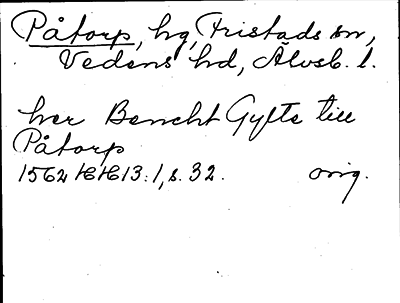 Påtorp, hg, Fristads sn,
Vedens hd, Älvsb. l.
her Bencht Gylte till
Påtorp
1562 HH 13:1, s. 32. orig.